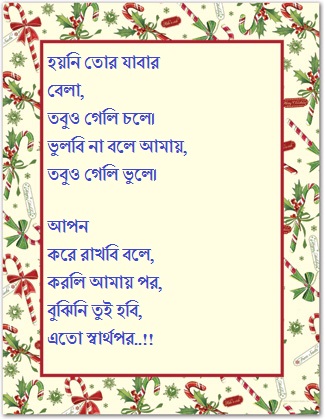 হয়নি তোর যাবার
বেলা,
তবুও গেলি চলে৷
ভুলবি না বলে আমায়,
তবুও গেলি ভুলে৷
আপন
করে রাখবি বলে,
করলি আমায় পর,
বুঝিনি তুই হবি,
এতো স্বার্থপর..!!